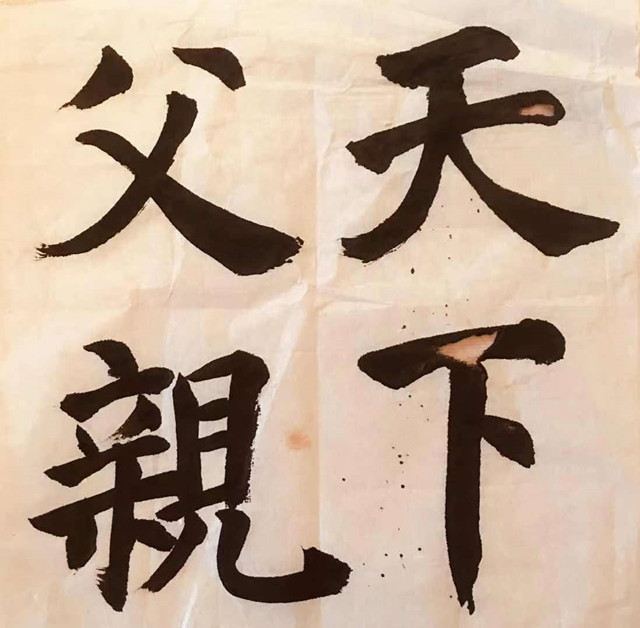 天下
父親